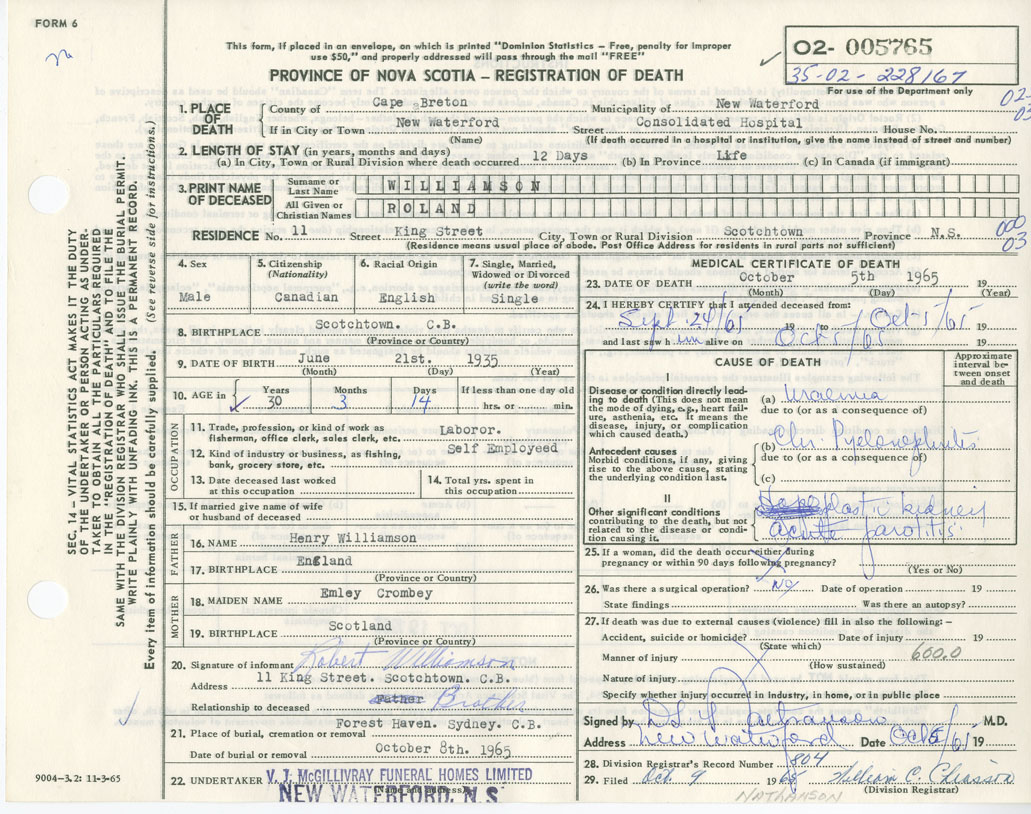 FORM 6
This form, if placed in an envelope, on which is printed "Dominion Statistics – Free, penalty for improper
use $50," and properly addressed will pass through the mail "FREE"
PROVINCE OF NOVA SCOTIA – REGISTRATION OF DEATH
02- 005765
35-02-228167
For use of the Department only
02-
03
SEC. 14 – VITAL STATISTICS ACT MAKES IT THE DUTY
OF THE UNDERTAKER OR PERSON ACTING AS UNDER-
TAKER TO OBTAIN ALL THE PARTICULARS REQUIRED
IN THE "REGISTRATION OF DEATH" AND TO FILE THE
SAME WITH THE DIVISION REGISTRAR WHO SHALL ISSUE THE BURIAL PERMIT.
WRITE PLAINLY WITH UNFADING INK. THIS IS A PERMANENT RECORD.
Every item of information should be carefully supplied. (See reverse side for instructions.)
1. PLACE OF DEATH
County of Cape Breton Municipality of New Waterford
If in City or Town New Waterford Street Consolidated Hospital House No.
(Name) (If death occurred in a hospital or institution, give the name instead of street and number)
2. LENGTH OF STAY (in years, months and days)
(a) In City, Town or Rural Division where death occurred 12 Days (b) In Province Life (c) In Canada (if immigrant)
3. PRINT NAME OF DECEASED
Surname or Last Name WILLIAMSON
All Given or Christian Names ROLAND
RESIDENCE No. 11 Street King Street City, Town or Rural Division Scotchtown Province N.S.
(Residence means usual place of abode. Post Office Address for residents in rural parts not sufficient)
000
03
4. Sex
Male
5. Citizenship
(Nationality)
Canadian
6. Racial Origin
English
7. Single, Married,
Widowed or Divorced
(write the word)
Single
8. BIRTHPLACE Scotchtown. C.B.
(Province or Country)
9. DATE OF BIRTH June 21st. 1935
(Month) (Day) (Year)
10. AGE in Years Months Days If less than one day old
30 3 14 hrs. or min.
OCCUPATION
11. Trade, profession, or kind of work as
fisherman, office clerk, sales clerk, etc. Laboror.
12. Kind of industry or business, as fishing,
bank, grocery store, etc. Self Employeed
13. Date deceased last worked
at this occupation
14. Total yrs. spent in
this occupation
15. If married give name of wife
or husband of deceased
FATHER
16. NAME Henry Williamson
17. BIRTHPLACE England
(Province or Country)
MOTHER
18. MAIDEN NAME Emley Crombey
19. BIRTHPLACE Scotland
(Province or Country)
20. Signature of informant Robert Williamson
Address 11 King Street. Scotchtown. C.B.
Relationship to deceased Father Brother
21. Place of burial, cremation or removal Forest Haven. Sydney. C.B.
Date of burial or removal October 8th. 1965
22. UNDERTAKER V. J. McGILLIVRAY FUNERAL HOMES LIMITED
(Name and address)
NEW WATERFORD, N.S.
9004-3.2: 11-3-65
MEDICAL CERTIFICATE OF DEATH
23. DATE OF DEATH October 5th 1965 19
(Month) (Day) (Year)
24. I HEREBY CERTIFY that I attended deceased from:
Sept 24/65 19 to Oct 5/65 19
and last saw h im alive on Oct 5/65 19
CAUSE OF DEATH
Approximate
interval be-
tween onset
and death
I
Disease or condition directly lead-
ing to death (This does not mean
the mode of dying, e.g., heart fail-
ure, asthenia, etc. It means the
disease, injury, or complication
which caused death.)
(a) Uraemia
due to (or as a consequence of)
Antecedent causes
Morbid conditions, if any, giving
rise to the above cause, stating
the underlying condition last.
(b) Chr. Pyelonephritis
due to (or as a consequence of)
(c)
II
Other significant conditions
contributing to the death, but not
related to the disease or condi-
tion causing it.
plastic kidney
acute parotitis
25. If a woman, did the death occur either during
pregnancy or within 90 days following pregnancy?
(Yes or No)
26. Was there a surgical operation? No Date of operation 19
State findings Was there an autopsy?
27. If death was due to external causes (violence) fill in also the following: –
Accident, suicide or homicide? Date of injury 19
(State which)
Manner of injury 600.0
(How sustained)
Nature of injury
Specify whether injury occurred in industry, in home, or in public place
Signed by M.D.
Address New Waterford Date Oct 6/65 19
28. Division Registrar's Record Number 804
29. Filed Oct. 9 1965 William C. Chiasson
(Division Registrar)
NATHANSON